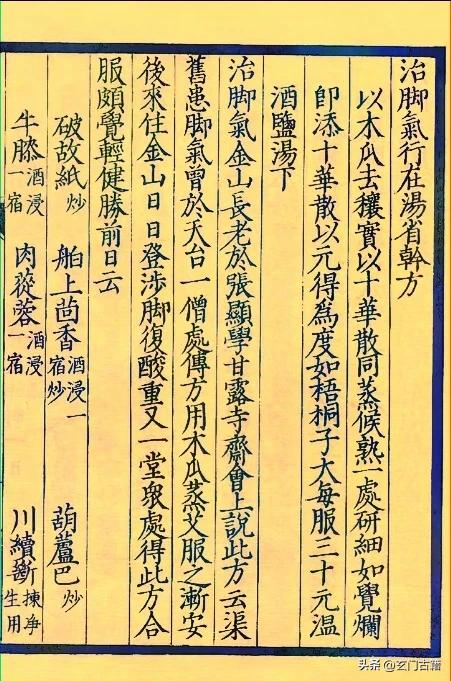 治脚氣行在湯省幹方
以木瓜去穰實以十華散同蒸候熟一處研細如覺爛
即添十華散以元得爲度如梧桐子大每服三十元温
酒鹽湯下
治脚氣金山長老於張顯學甘露寺齋會上說此方云渠
舊患脚氣曾於天台一僧處傳方用木瓜蒸艾服之漸安
後來住金山日日登涉脚復酸重又一堂衆處得此方合
服頗覺輕健勝前日云
破故紙炒 舶上茴香酒浸一宿炒 葫蘆巴炒
牛膝酒浸一宿 肉蓯蓉酒浸一宿 川續斷揀净生用
头条 @玄门古籍